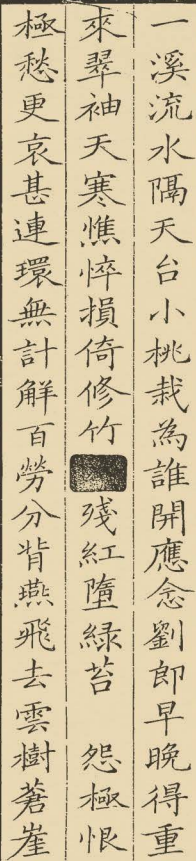 一溪流水隔天台小桃栽為誰開應念劉郎早晚得重
來翠袖天寒憔悴損倚修竹殘紅墮綠苔　怨極恨
極愁更哀甚連環無計解百勞分背燕飛去雲樹蒼崖